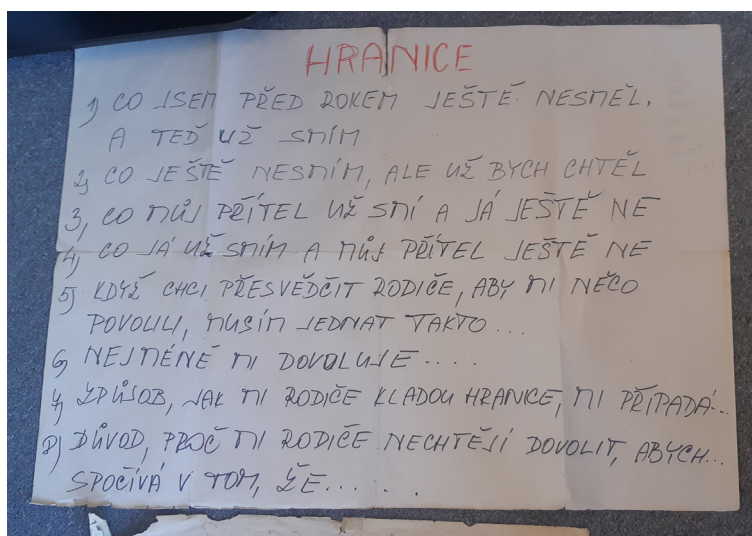 HRANICE
1) CO JSEM PŘED ROKEM JEŠTĚ NESMĚL,
A TEĎ UŽ SMÍM
2) CO JEŠTĚ NESMÍM, ALE UŽ BYCH CHTĚL
3) CO MŮJ PŘÍTEL UŽ SMÍ A JÁ JEŠTĚ NE
4) CO JÁ UŽ SMÍM A MŮJ PŘÍTEL JEŠTĚ NE
5) KDYŽ CHCI PŘESVĚDČIT RODIČE, ABY MI NĚCO
POVOLILI, MUSÍM JEDNAT TAKTO...
6) NEJMÉNĚ MI DOVOLUJE....
7) ZPŮSOB, JAK MI RODIČE KLADOU HRANICE, MI PŘIPADÁ...
8) DŮVOD, PROČ MI RODIČE NECHTĚJÍ DOVOLIT, ABYCH...
SPOČÍVÁ V TOM, ŽE.....